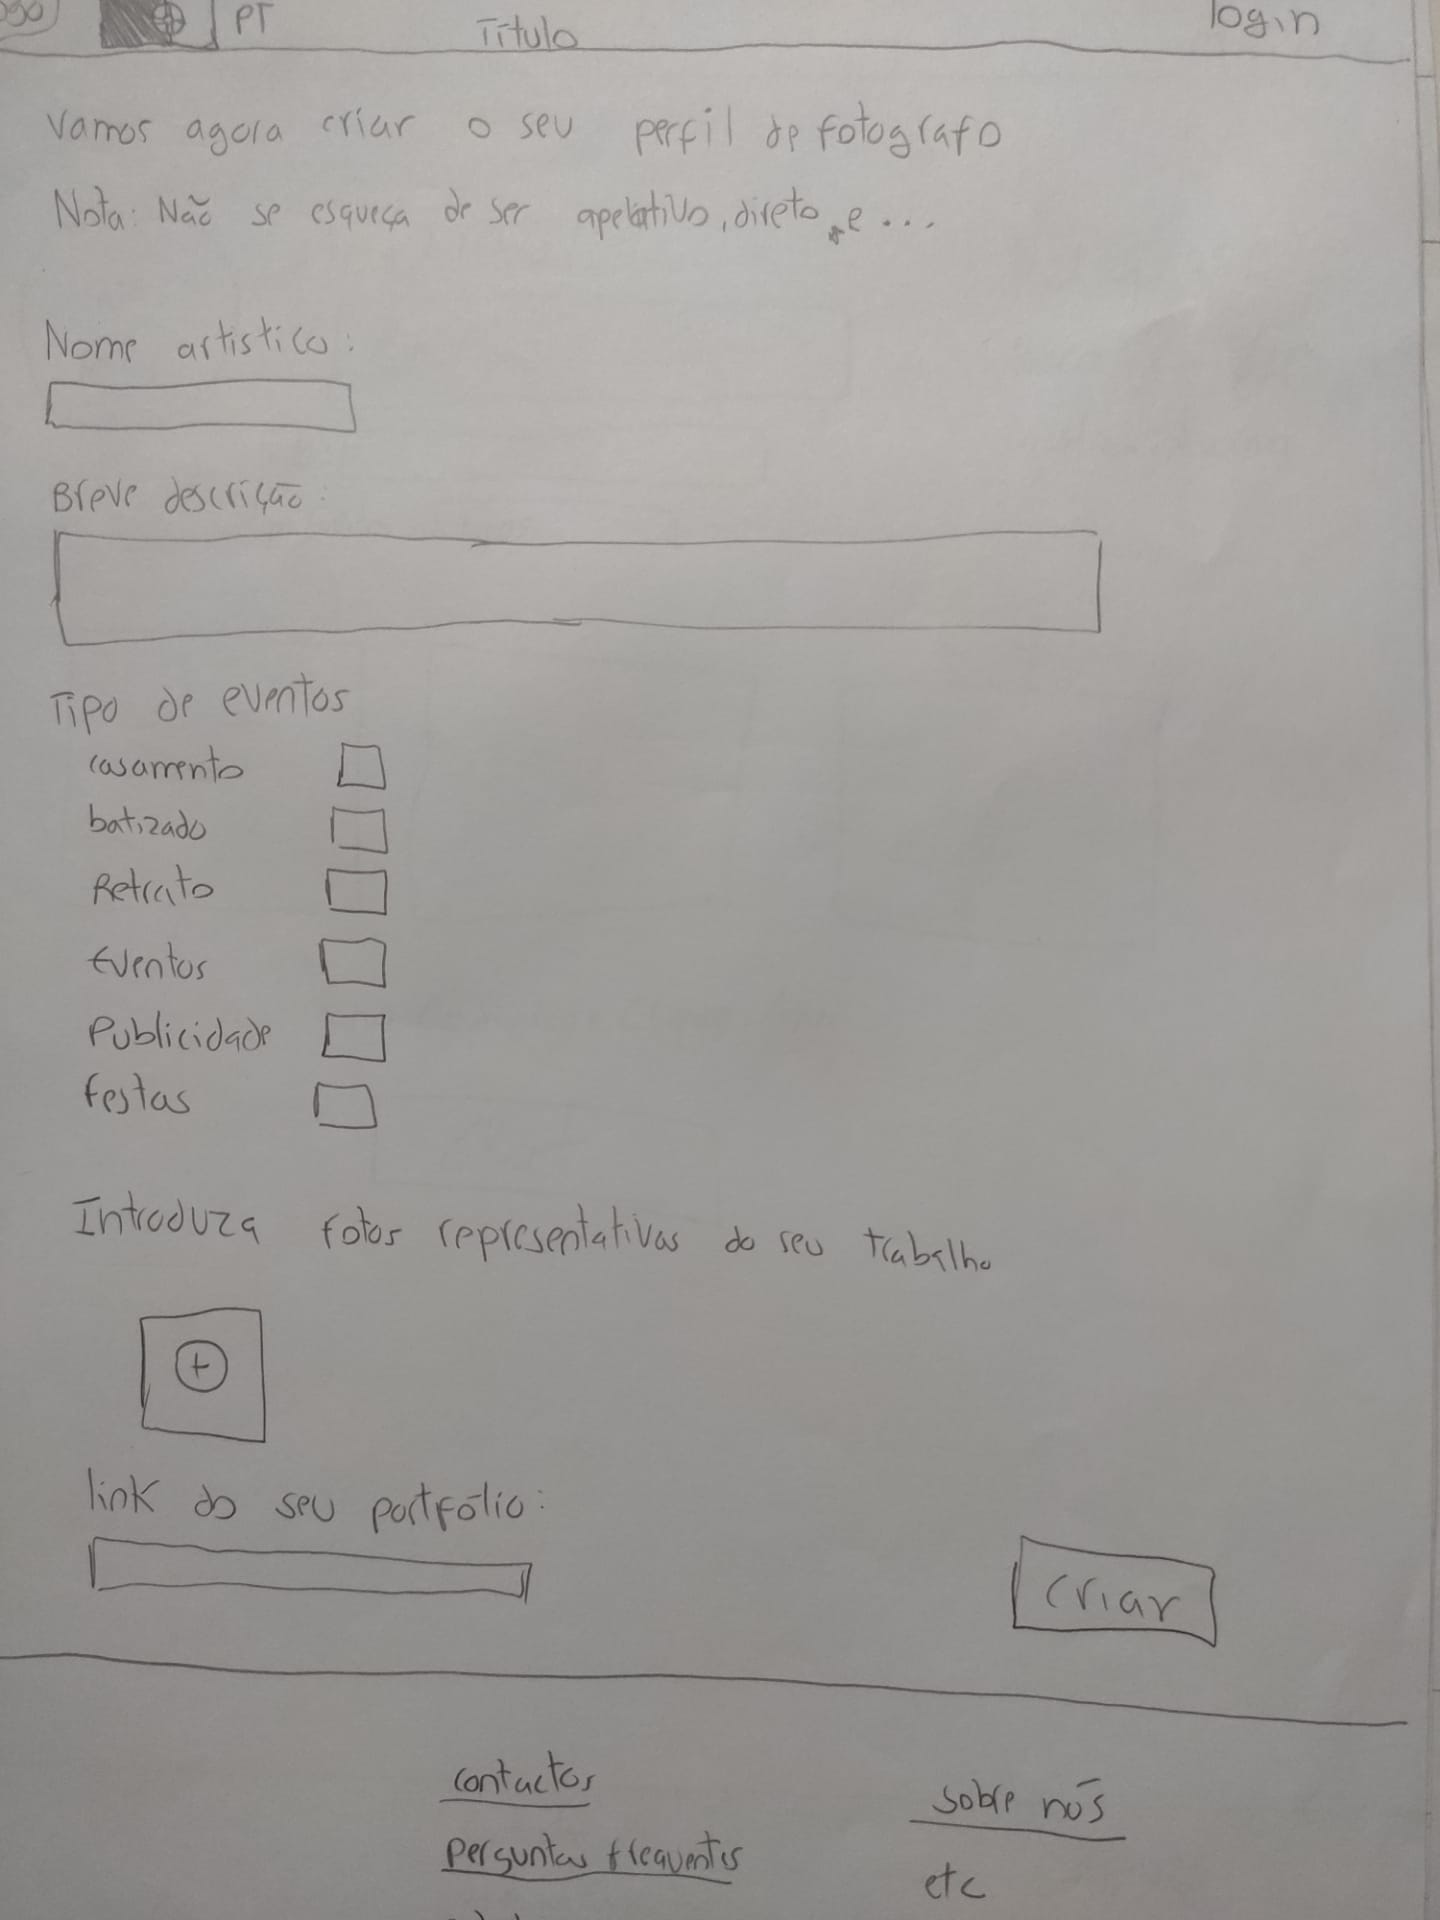 PT
Titulo
login
Vamos agora criar o seu perfil de fotografo
Nota: Não se esqueça de ser apelativo, direto, e ...
Nome artistico:
Breve descrição:
Tipo de eventos
casamento
batizado
Retrato
Eventos
Publicidade
festas
Introduza fotos representativas do seu trabalho
+
link do seu portfólio:
criar
contactos
sobre nós
perguntas frequentes
etc